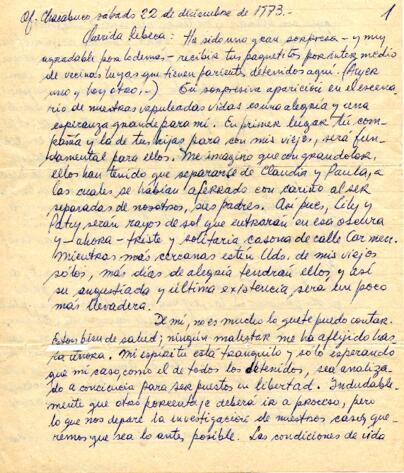 Of. Chacabuco sábado 22 de diciembre de 1973.-
1
Querida Rebeca: Ha sido una gran sorpresa - y muy
agradable por lo demás - recibir tus paquetitos por intermedio
de vecinas tuyas que tienen parientes detenidos aquí. (Ayer
uno y hoy otro.-) Tú sorpresiva aparición en el escena-
rio de nuestras vapuleadas vidas es una alegría y una
esperanza grande para mí. En primer lugar tu com-
pañía y la de tus hijas para con mis viejos, será fun-
damental para ellos. Me imagino que con gran dolor,
ellos han tenido que separarse de Claudia y Paula, a
las cuales se habían aferrado con cariño al ser
separadas de nosotros, sus padres. Así pues, Lily y
Paty, serán rayos de sol que entrarán en esa obscura
y -ahora- triste y solitaria casona de calle Carmen.
Mientras más cercanas estén Uds. de mis viejos
solos, más días de alegría tendrán ellos, y así
su angustiada y última existencia, será un poco
más llevadera.
De mí, no es mucho lo que te puedo contar.
Estoy bien de salud; ningún malestar me ha aflijido has-
ta ahora. Mi espíritu está tranquilo y solo esperando
que mi caso, como el de todos los detenidos, sea analiza-
do a conciencia para ser puestos en libertad. Indudable-
mente que otro porcentaje deberá ir a proceso, pero
lo que nos depare la investigación de nuestros casos, que-
remos que sea lo antes posible. Las condiciones de vida